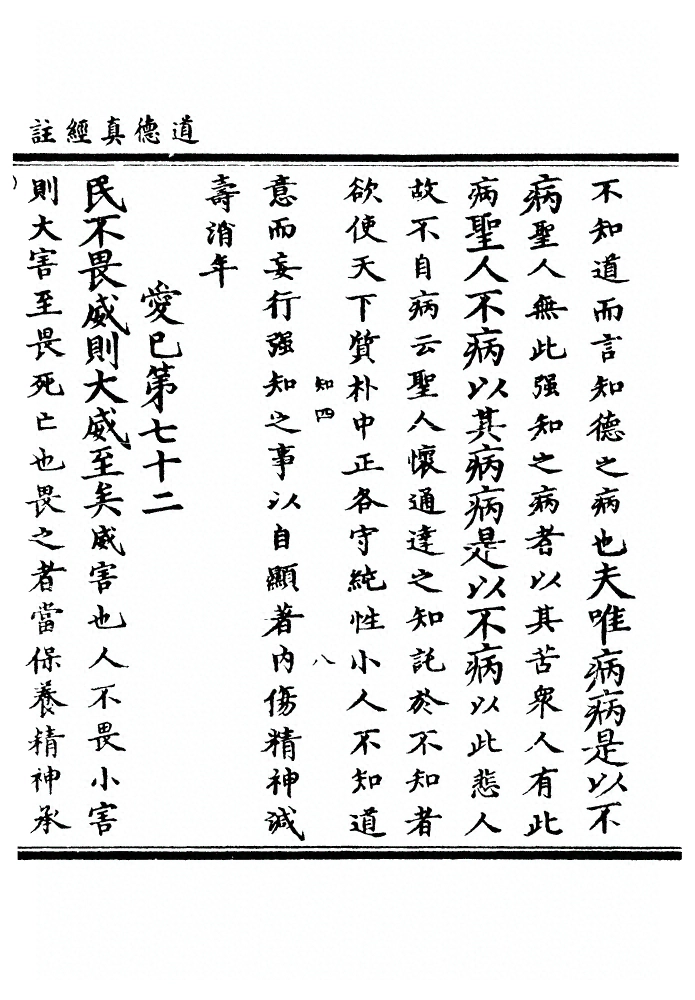 道德真經註
不知道而言知德之病也夫唯病病是以不
病聖人無此强知之病者以其苦衆人有此
病聖人不病以其病病是以不病以此悲人
故不自病云聖人懷通達之知託於不知者
欲使天下質朴中正各守純性小人不知道
知四 八
意而妄行强知之事以自顯著內傷精神減
壽消年
愛已第七十二
民不畏威則大威至矣威害也人不畏小害
則大害至畏死亡也畏之者當保養精神承